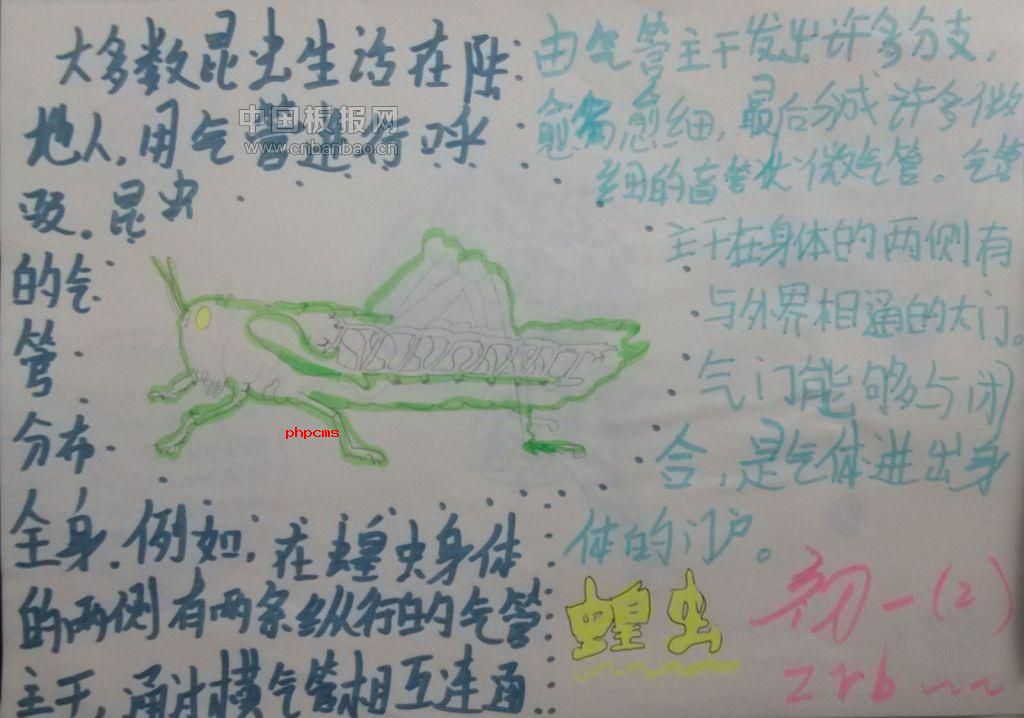 大多数昆虫生活在陆
地人,用气管进行呼
吸。昆虫
的气
管
分布
全身.例如,在蝗虫身体
的两侧有两条纵行的气管
主干,通过横气管相互连通
由气管主干发出许多分支,
愈分愈细,最后分成许多微
细的盲管状微气管。气管
主干在身体的两侧有
与外界相通的大门。
气门能够与闭
合,是气体进出身
体的门户。
蝗虫
初一(2)
zrb
中国板报网
www.cnbanbao.cn
phpcms